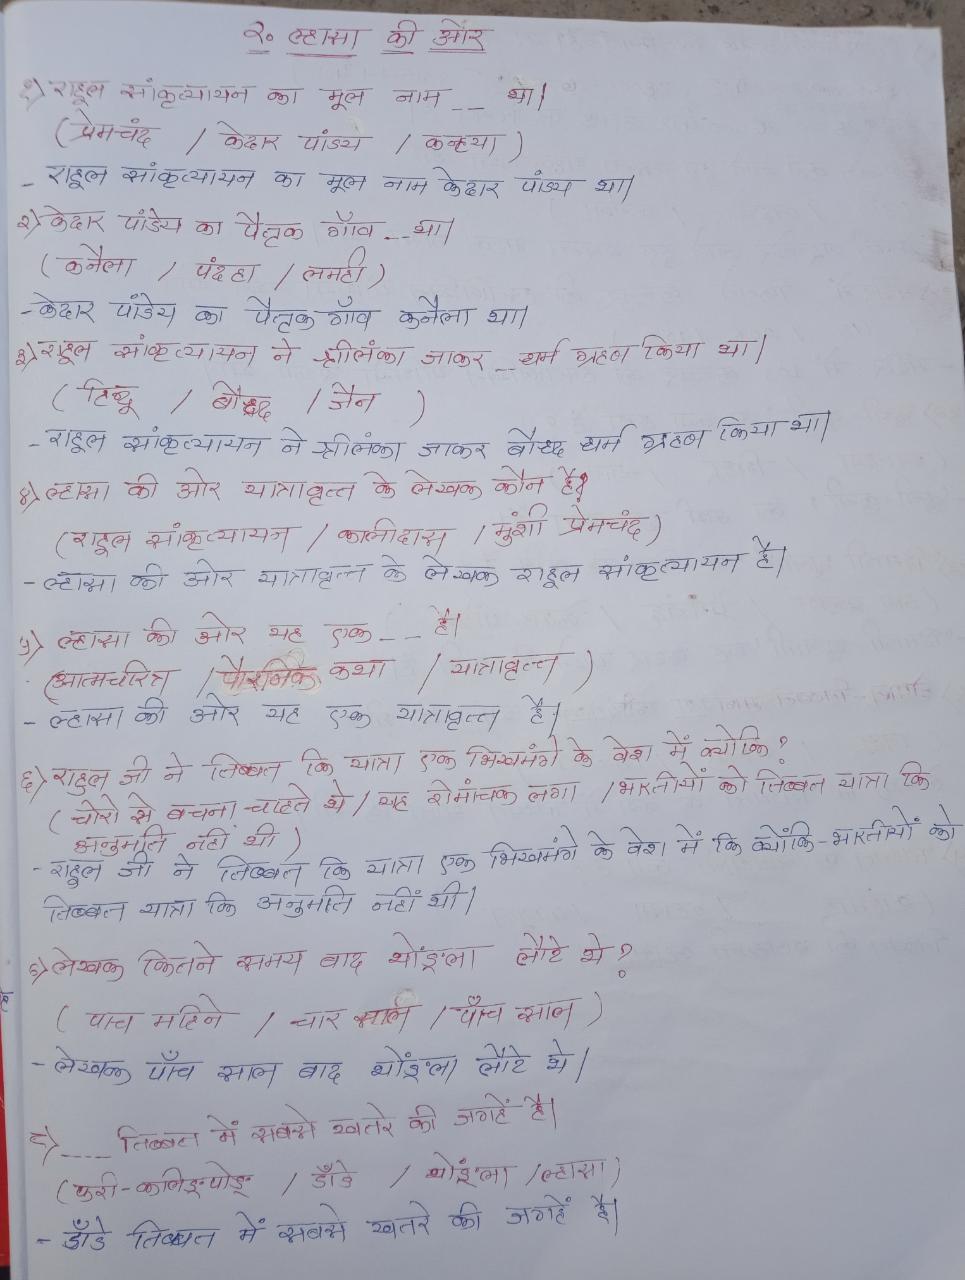 २. ल्हासा की ओर
१) राहूल सांकृत्यायन का मूल नाम __ था।
(प्रेमचंद / केदार पांड्य / कन्हया)
- राहूल सांकृत्यायन का मूल नाम केदार पांड्य था।
२) केदार पांडेय का पैतृक गाँव __ था।
(कनैला / पंदहा / लमही)
- केदार पांडेय का पैतृक गाँव कनैला था।
३) राहूल सांकृत्यायन ने श्रीलंका जाकर __ धर्म ग्रहण किया था।
(हिन्दू / बौध्द / जैन )
- राहूल सांकृत्यायन ने श्रीलंका जाकर बौध्द धर्म ग्रहण किया था।
४) ल्हासा की ओर यात्रावृत्त के लेखक कौन है?
(राहूल सांकृत्यायन / कालीदास / मुंशी प्रेमचंद)
- ल्हासा की ओर यात्रावृत्त के लेखक राहूल सांकृत्यायन है।
५) ल्हासा की ओर यह एक __ है।
(आत्मचरित्र / कथा / यात्रावृत्त )
- ल्हासा की ओर यह एक यात्रावृत्त है।
६) राहूल जी ने तिब्बत कि यात्रा एक भिखमंगे के वेश में क्योकि?
(चोरो से बचना चाहते थे / यह रोमांचक लगा / भारतीयों को तिब्बत यात्रा कि
अनुमति नहीं थी )
- राहूल जी ने तिब्बत कि यात्रा एक भिखमंगे के वेश में कि क्योंकि भारतीयों को
तिब्बत यात्रा कि अनुमति नहीं थी।
लेखक कितने समय बाद थोङ्ला लौटे थे?
( पाच महिने / चार साल / पाँच साल )
- लेखक पाँच साल बाद थोङ्ला लौटे थे।
८) ___ तिब्बत में सबसे खतरे की जगहें है।
/ डाँडे / थोङ्ला / ल्हासा)
- डाँडे तिब्बत में सबसे खतरे की जगहें है।